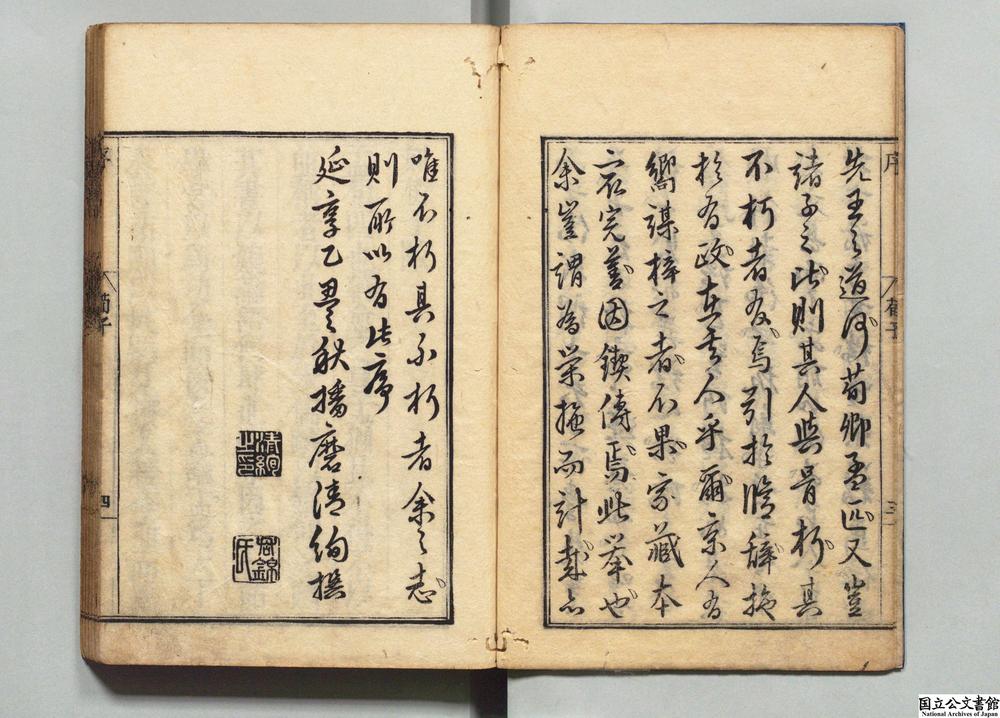 序
荀子
三
先王之道何荀卿孟匹又豈
諸子之比則其人與骨朽其
不朽者存焉引於修辭施
於為政在其人乎爾京人有
嚮謀梓之者不果家藏本
完善因鍥傳焉此舉也
余豈謂為榮施而計哉亦
唯不朽其不朽者余之志
則所以有此序
延享乙丑秋播磨清絢撰
清絢之印
君錦氏
序
荀子
四
国立公文書館
National Archives of Japan